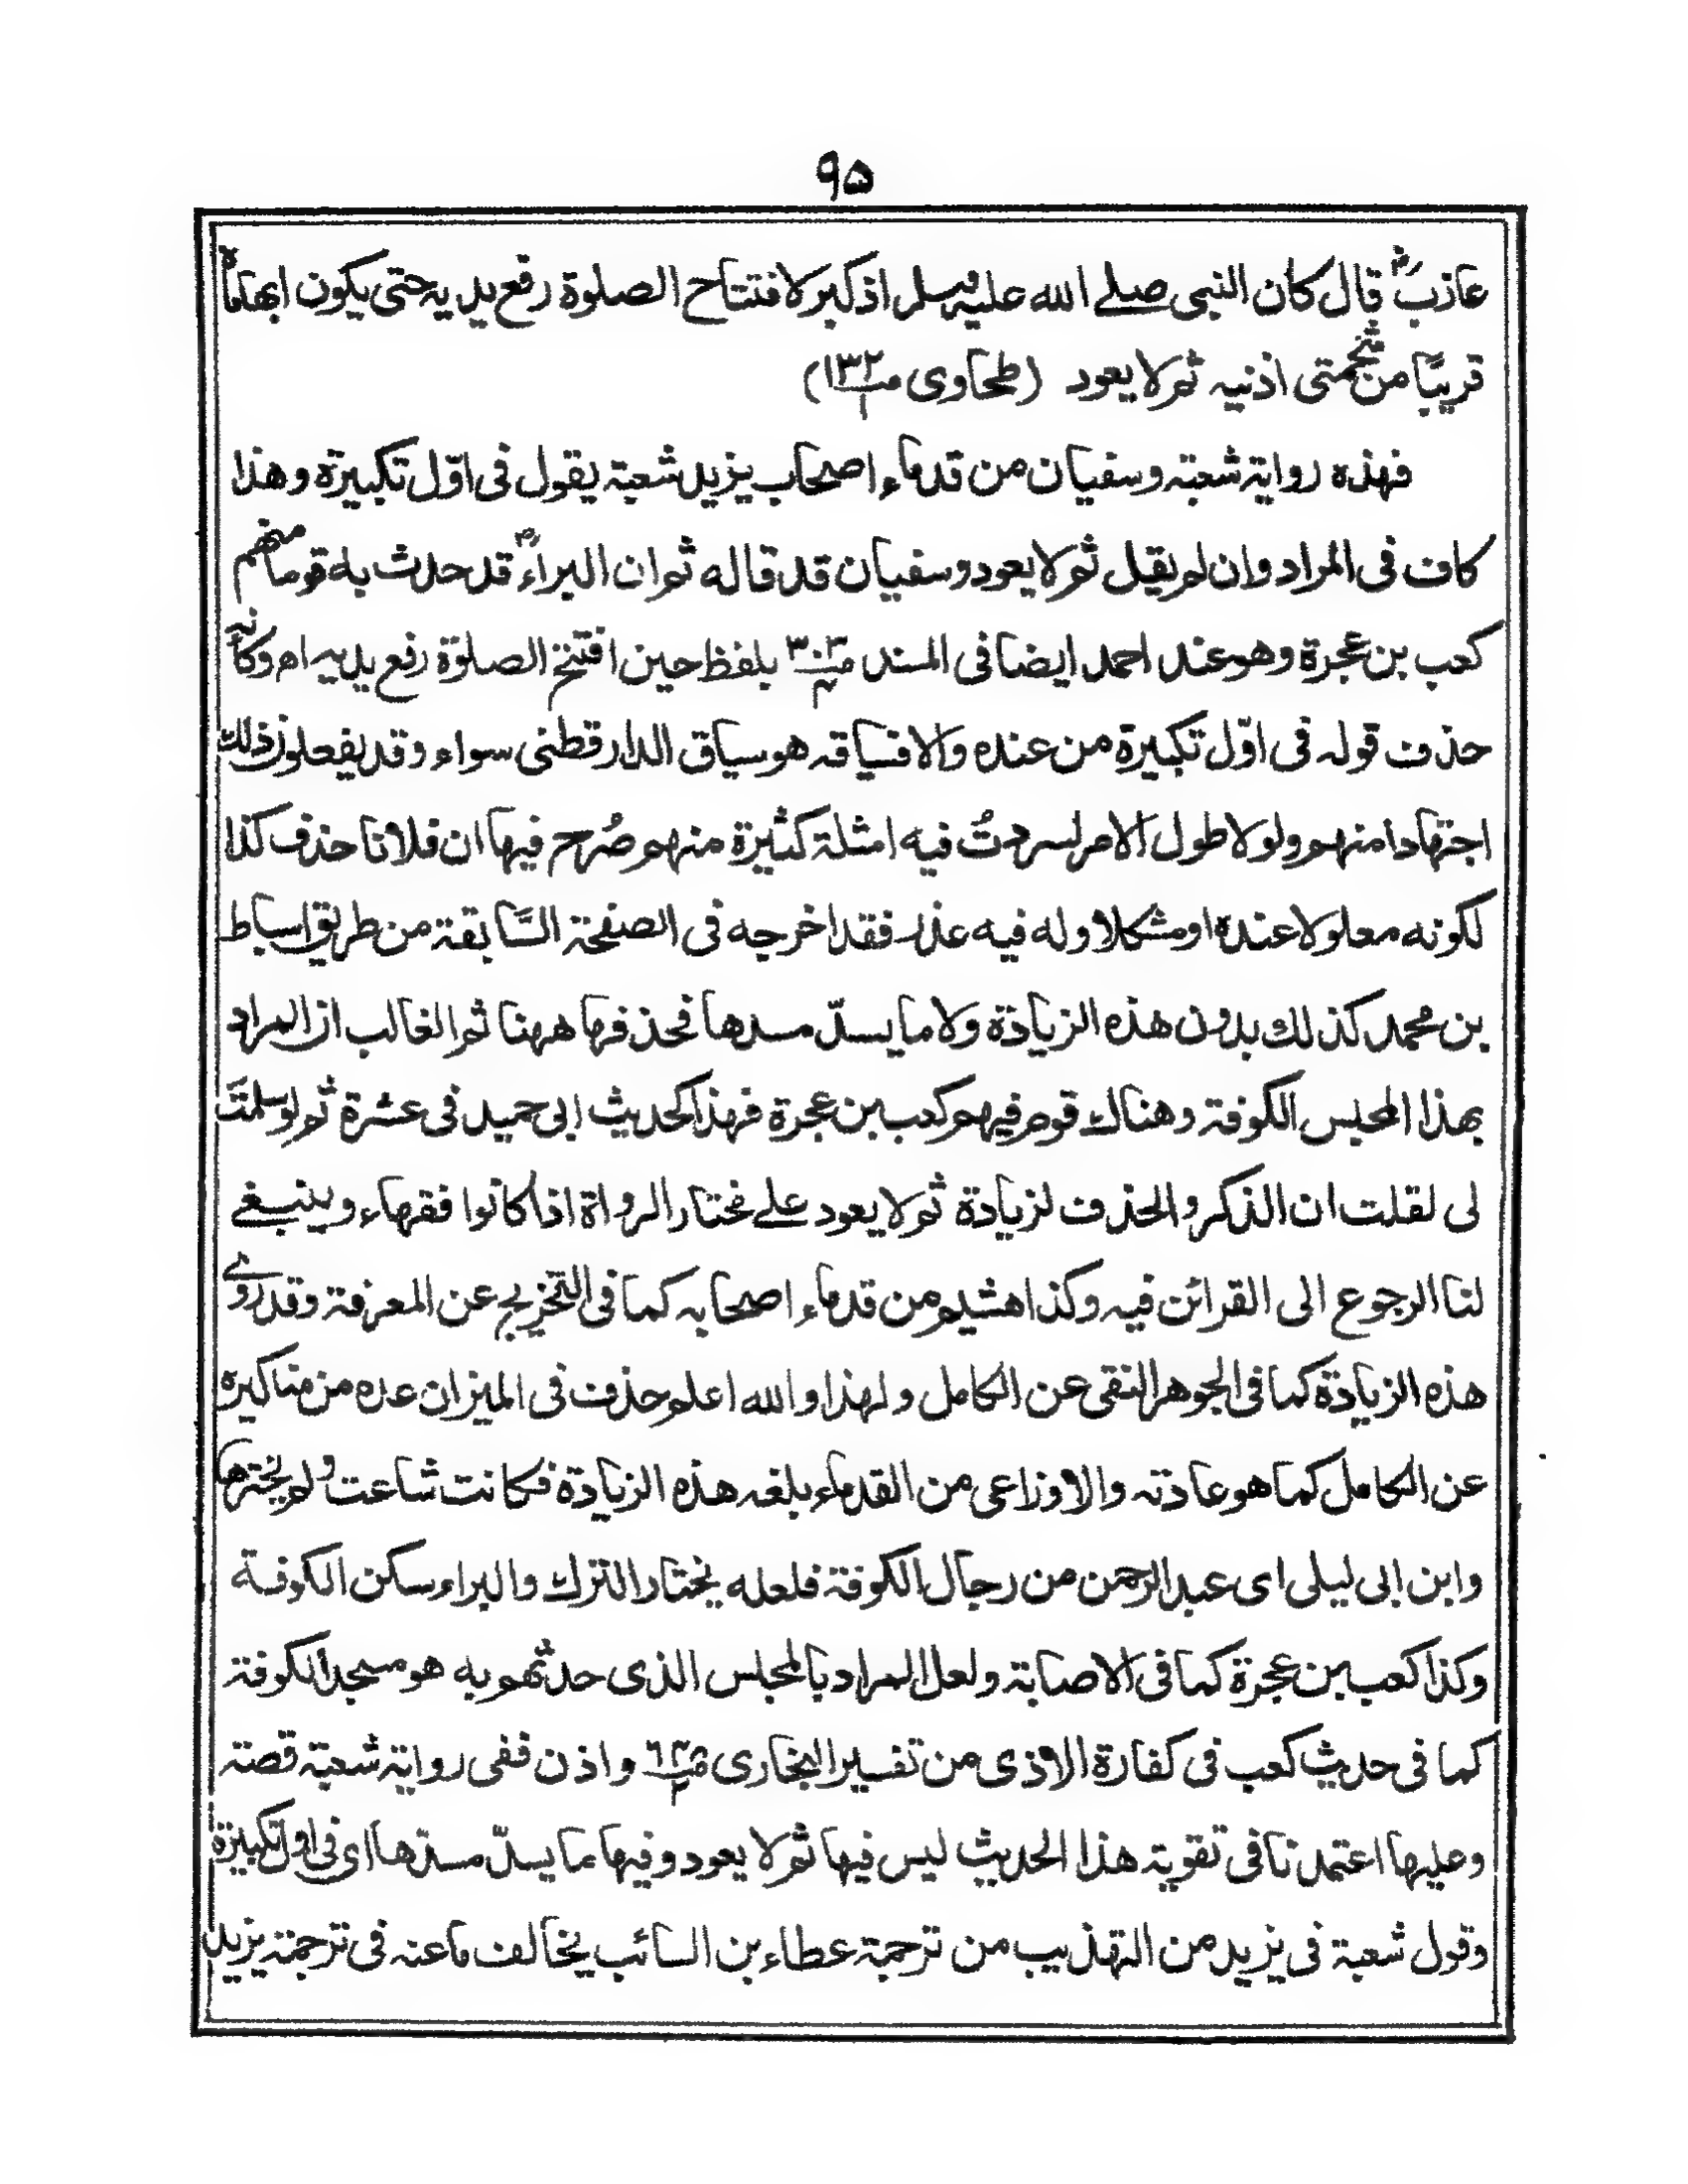 ۹۵
عازبؓ قال كان النبى صلے الله عليه وسلم اذكبر لافتتاح الصلوة رفع يديه حتى يكون ابهاماه
قريبًا من شحمتى اذنيه ثم لا يعود (طحاوى صـ۱۳۲/۱)
فهذه رواية شعبة وسفيان من قدماء اصحاب يزيد شعبة يقول فى اوّل تكبيرة وهذا
كاف فى المراد وان لم يقل ثم لا يعود وسفيان قد قاله ثم ان البراءؓ قد حدث به قوما منهم
كعب بن عجرة وهو عند احمد ايضا فى المسند صـ۳۰۳/۴ بلفظ حين افتتح الصلوة رفع يديه اه وكأنه
حذف قوله فى اوّل تكبيرة من عنده والا فسياقه هو سياق الدارقطنى سواء وقد يفعلون ذلك
اجتهادا منهم ولولا طول الامر لسردتُ فيه امثلة كثيرة منهم صُرح فيها ان فلانا حذف كذا
لكونه معلولا عنده او مشكلا وله فيه عذر فقد اخرجه فى الصفحة السَّابقة من طريق اسباط
بن محمد كذلك بدون هذه الزيادة ولا ما يسدّ مسدها فحذفها ههنا ثم الغالب ان المراد
بهذا المجلس الكوفة وهناك قوم فيهم كعب بن عجرة فهذا كحديث ابى حميد فى عشرة ثم لو سلمتَ
لى لقلت ان الذكر والحذف لزيادة ثم لا يعود علے مختار الرواة اذا كانوا فقهاء وينبغے
لنا الرجوع الى القرائن فيه وكذا هشيم من قدماء اصحابه كما فى التخريج عن المعرفة وقد روے
هذه الزيادة كما فى الجوهر النقى عن الكامل ولهذا والله اعلم حذف فى الميزان عده من مناكيره
عن الكامل كما هو عادته والاوزاعى من القدماء بلغه هذه الزيادة فكانت شاعت ولم يخترها
وابن ابى ليلى اى عبد الرحمن من رجال الكوفة فلعله يختار الترك والبراء سكن الكوفة
وكذا كعب بن عجرة كما فى الاصابة ولعل المراد بالمجلس الذى حدثهم به هو مسجد الكوفة
كما فى حديث كعب فى كفارة الاذى من تفسير البخارى واذن ففى رواية شعبة قصته
وعليها اعتمدنا فى تقوية هذا الحديث ليس فيها ثم لا يعود وفيها ما يسدّ مسدّها اى فى اول تكبيرة
وقول شعبة فى يزيد من التهذيب من ترجمة عطاء بن السائب يخالف ما عنه فى ترجمة يزيد